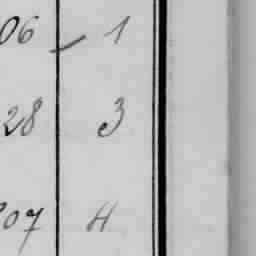 06 1
28 3
207 4